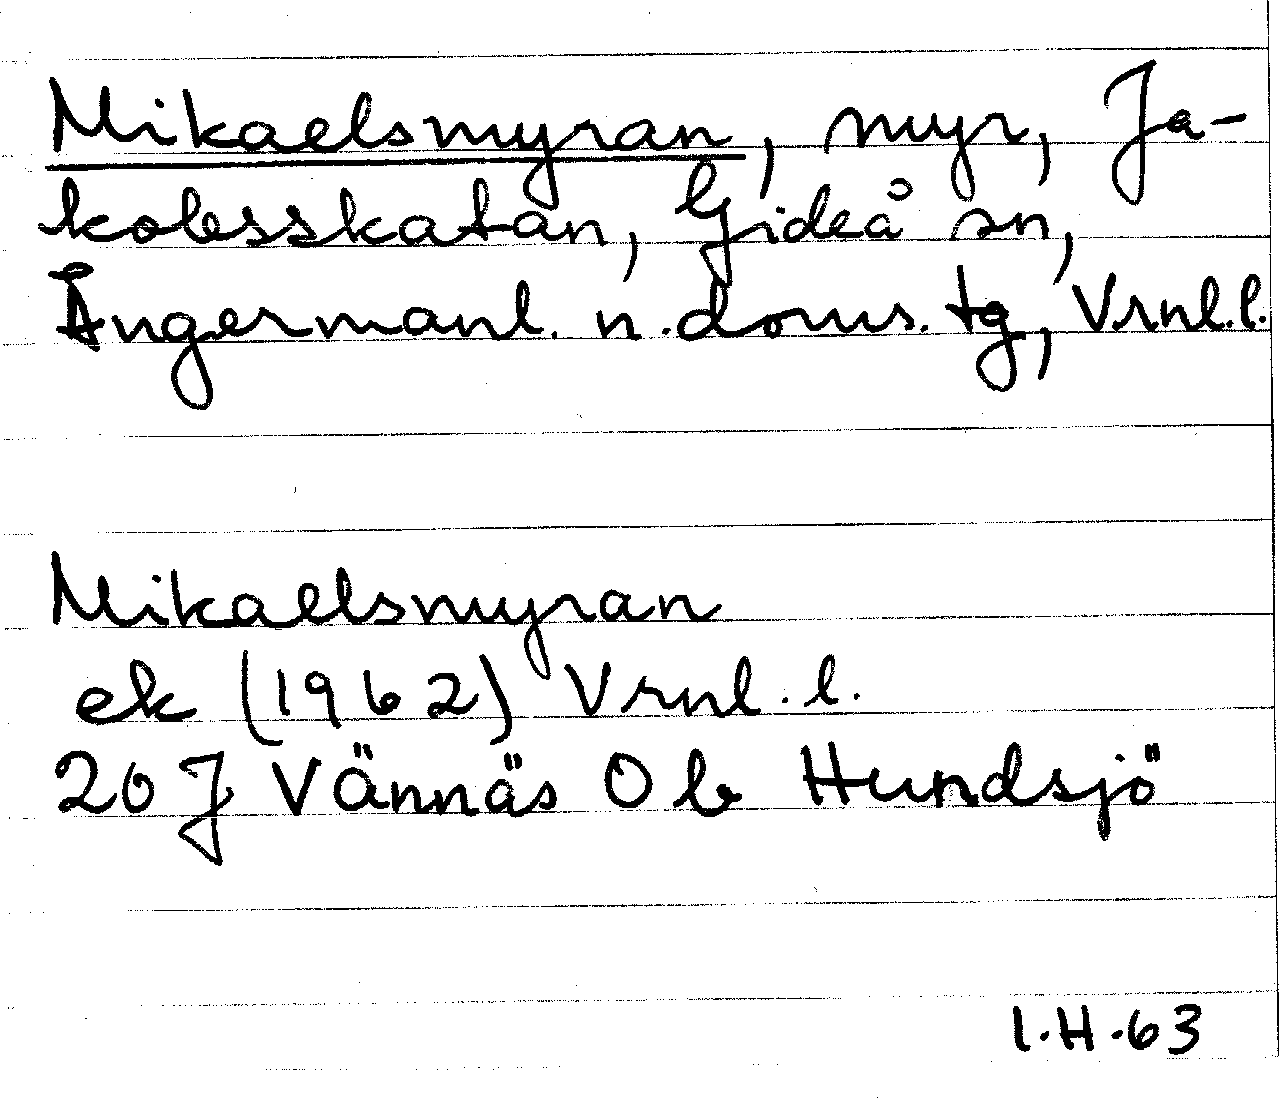 Mikaelsmyran, myr, Ja-
kobsskatan, Gideå sn,
Ångermanl. n. doms. tg, Vrnl.l.
Mikaelsmyran
ek (1962) Vrnl.l.
20 J Vännäs O b Hundsjö
I.H.63